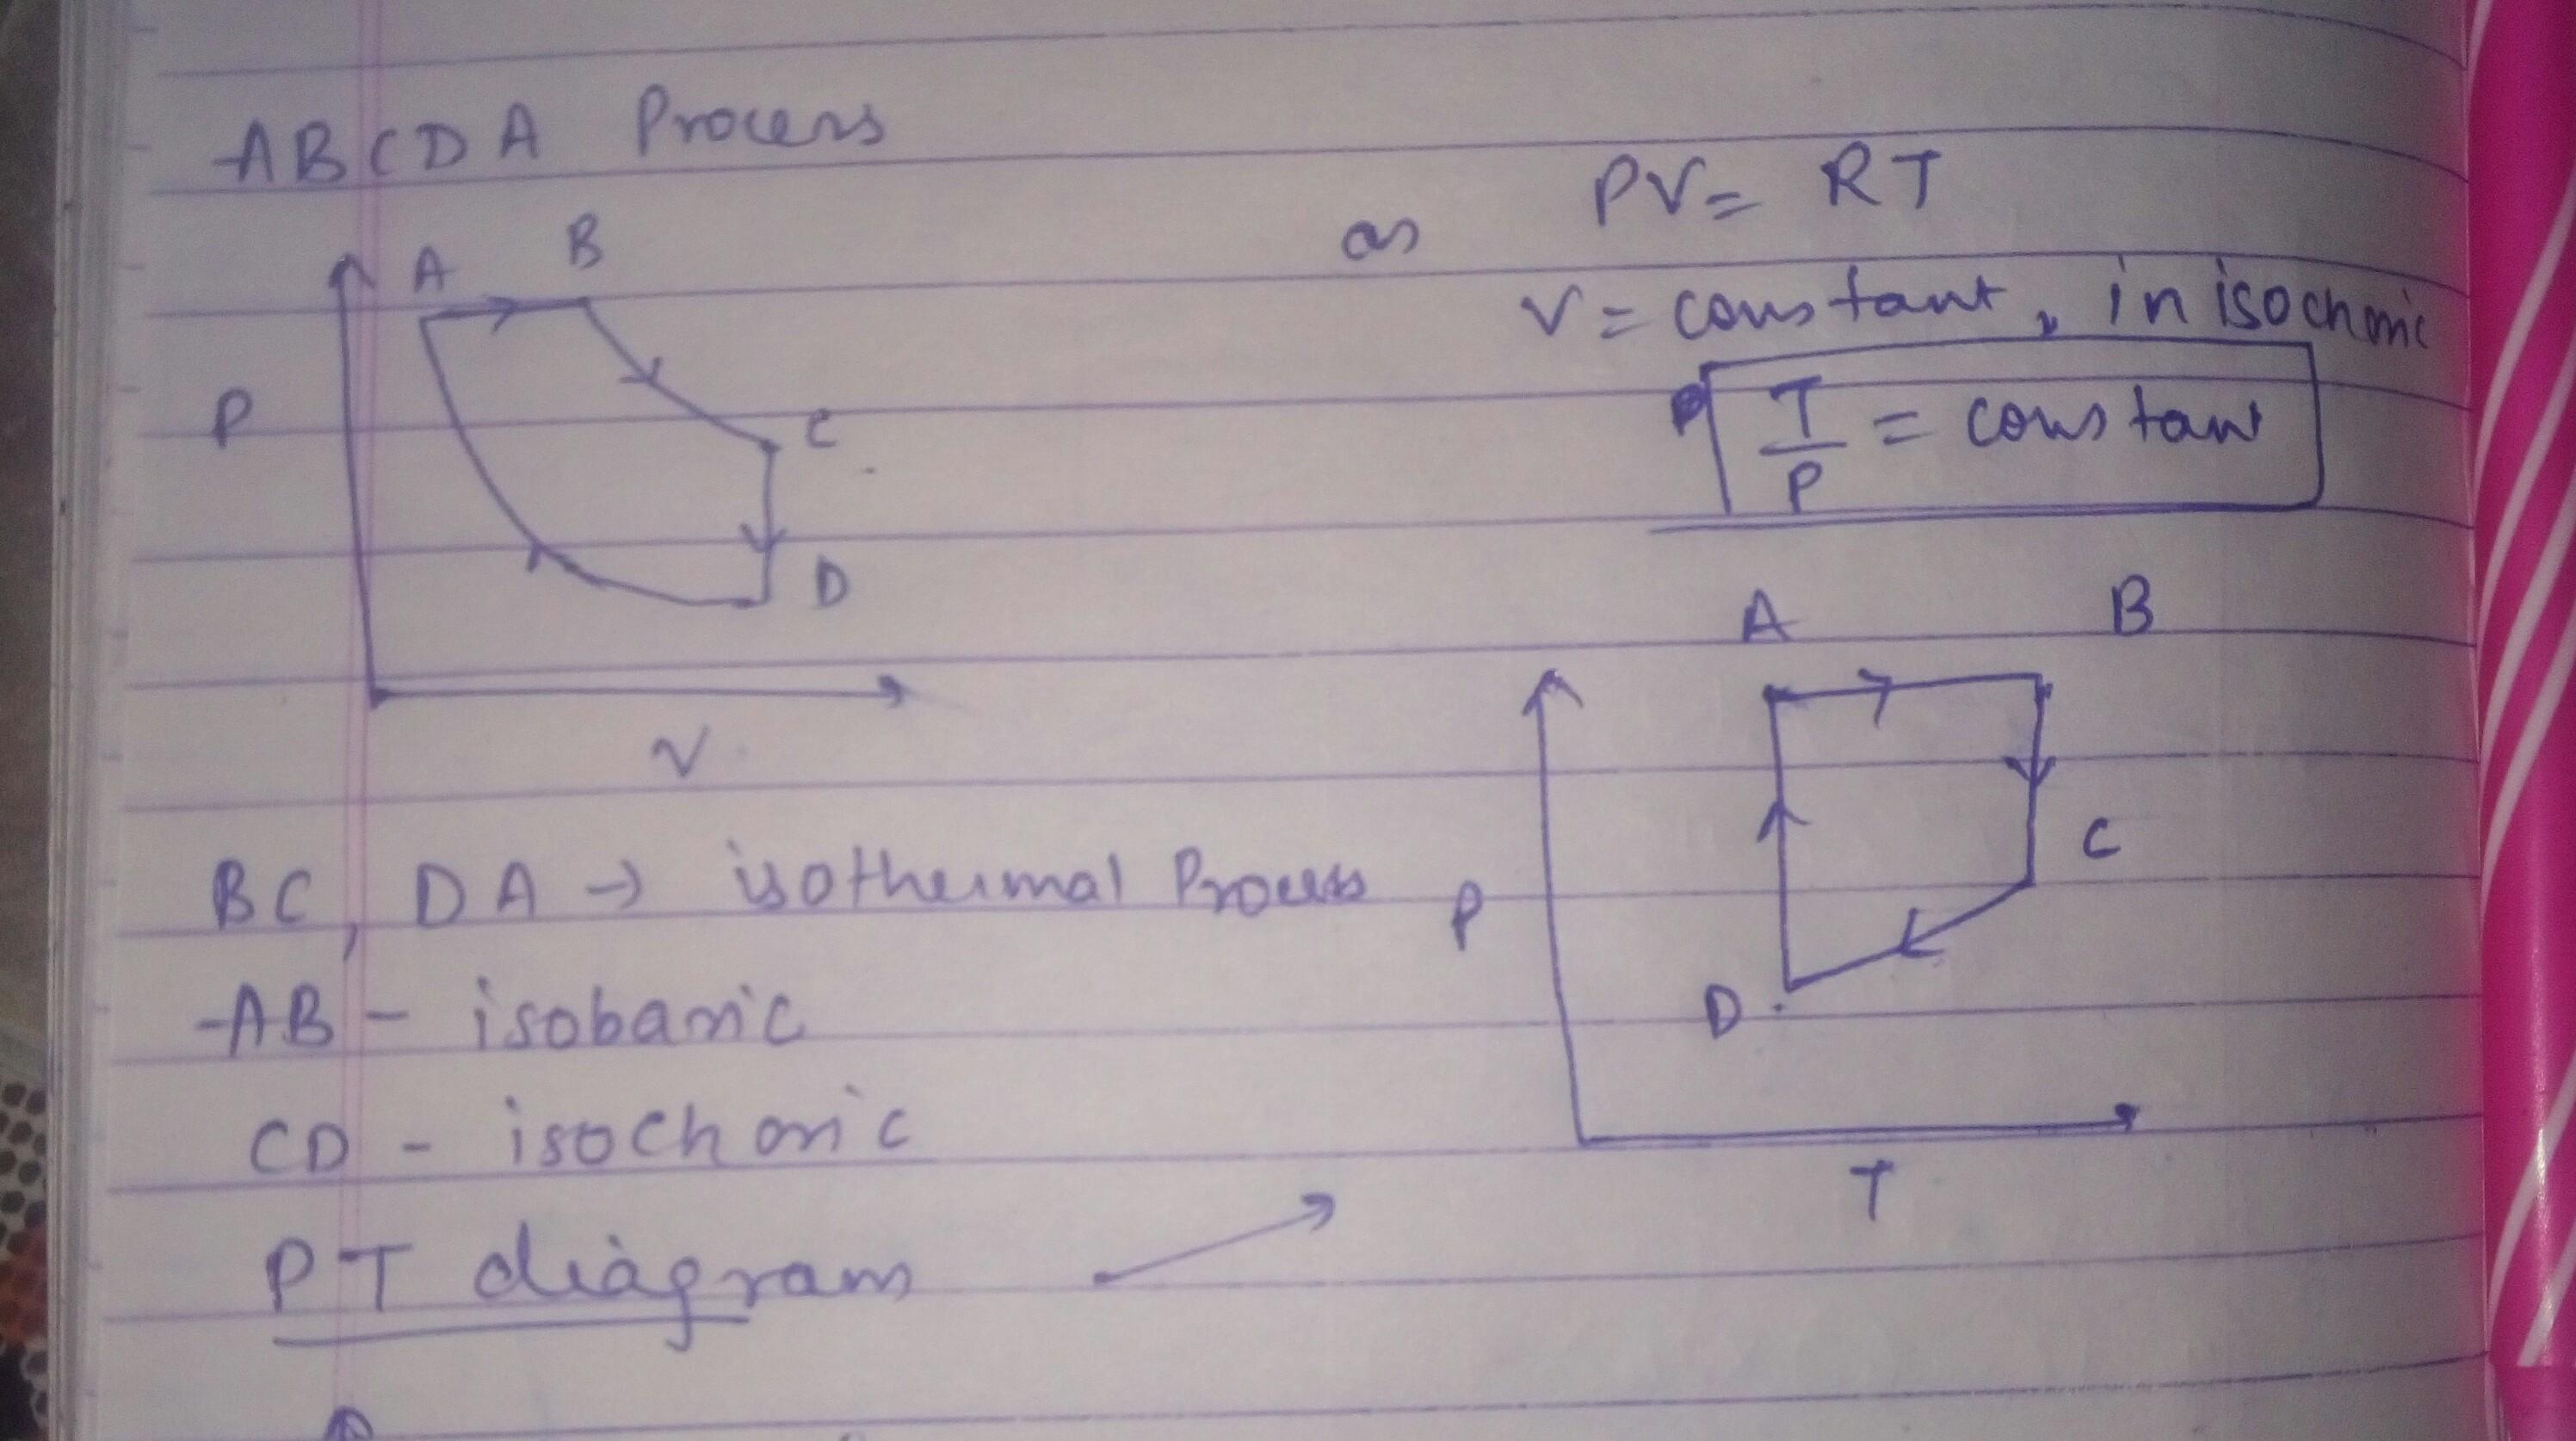 ABCDA Process
A B
P
C
D
V
BC, DA → isothermal Process
AB - isobaric
CD - isochoric
PT diagram
as PV = RT
V = constant, in isochoric
T/P = constant
A B
C
P
D
T